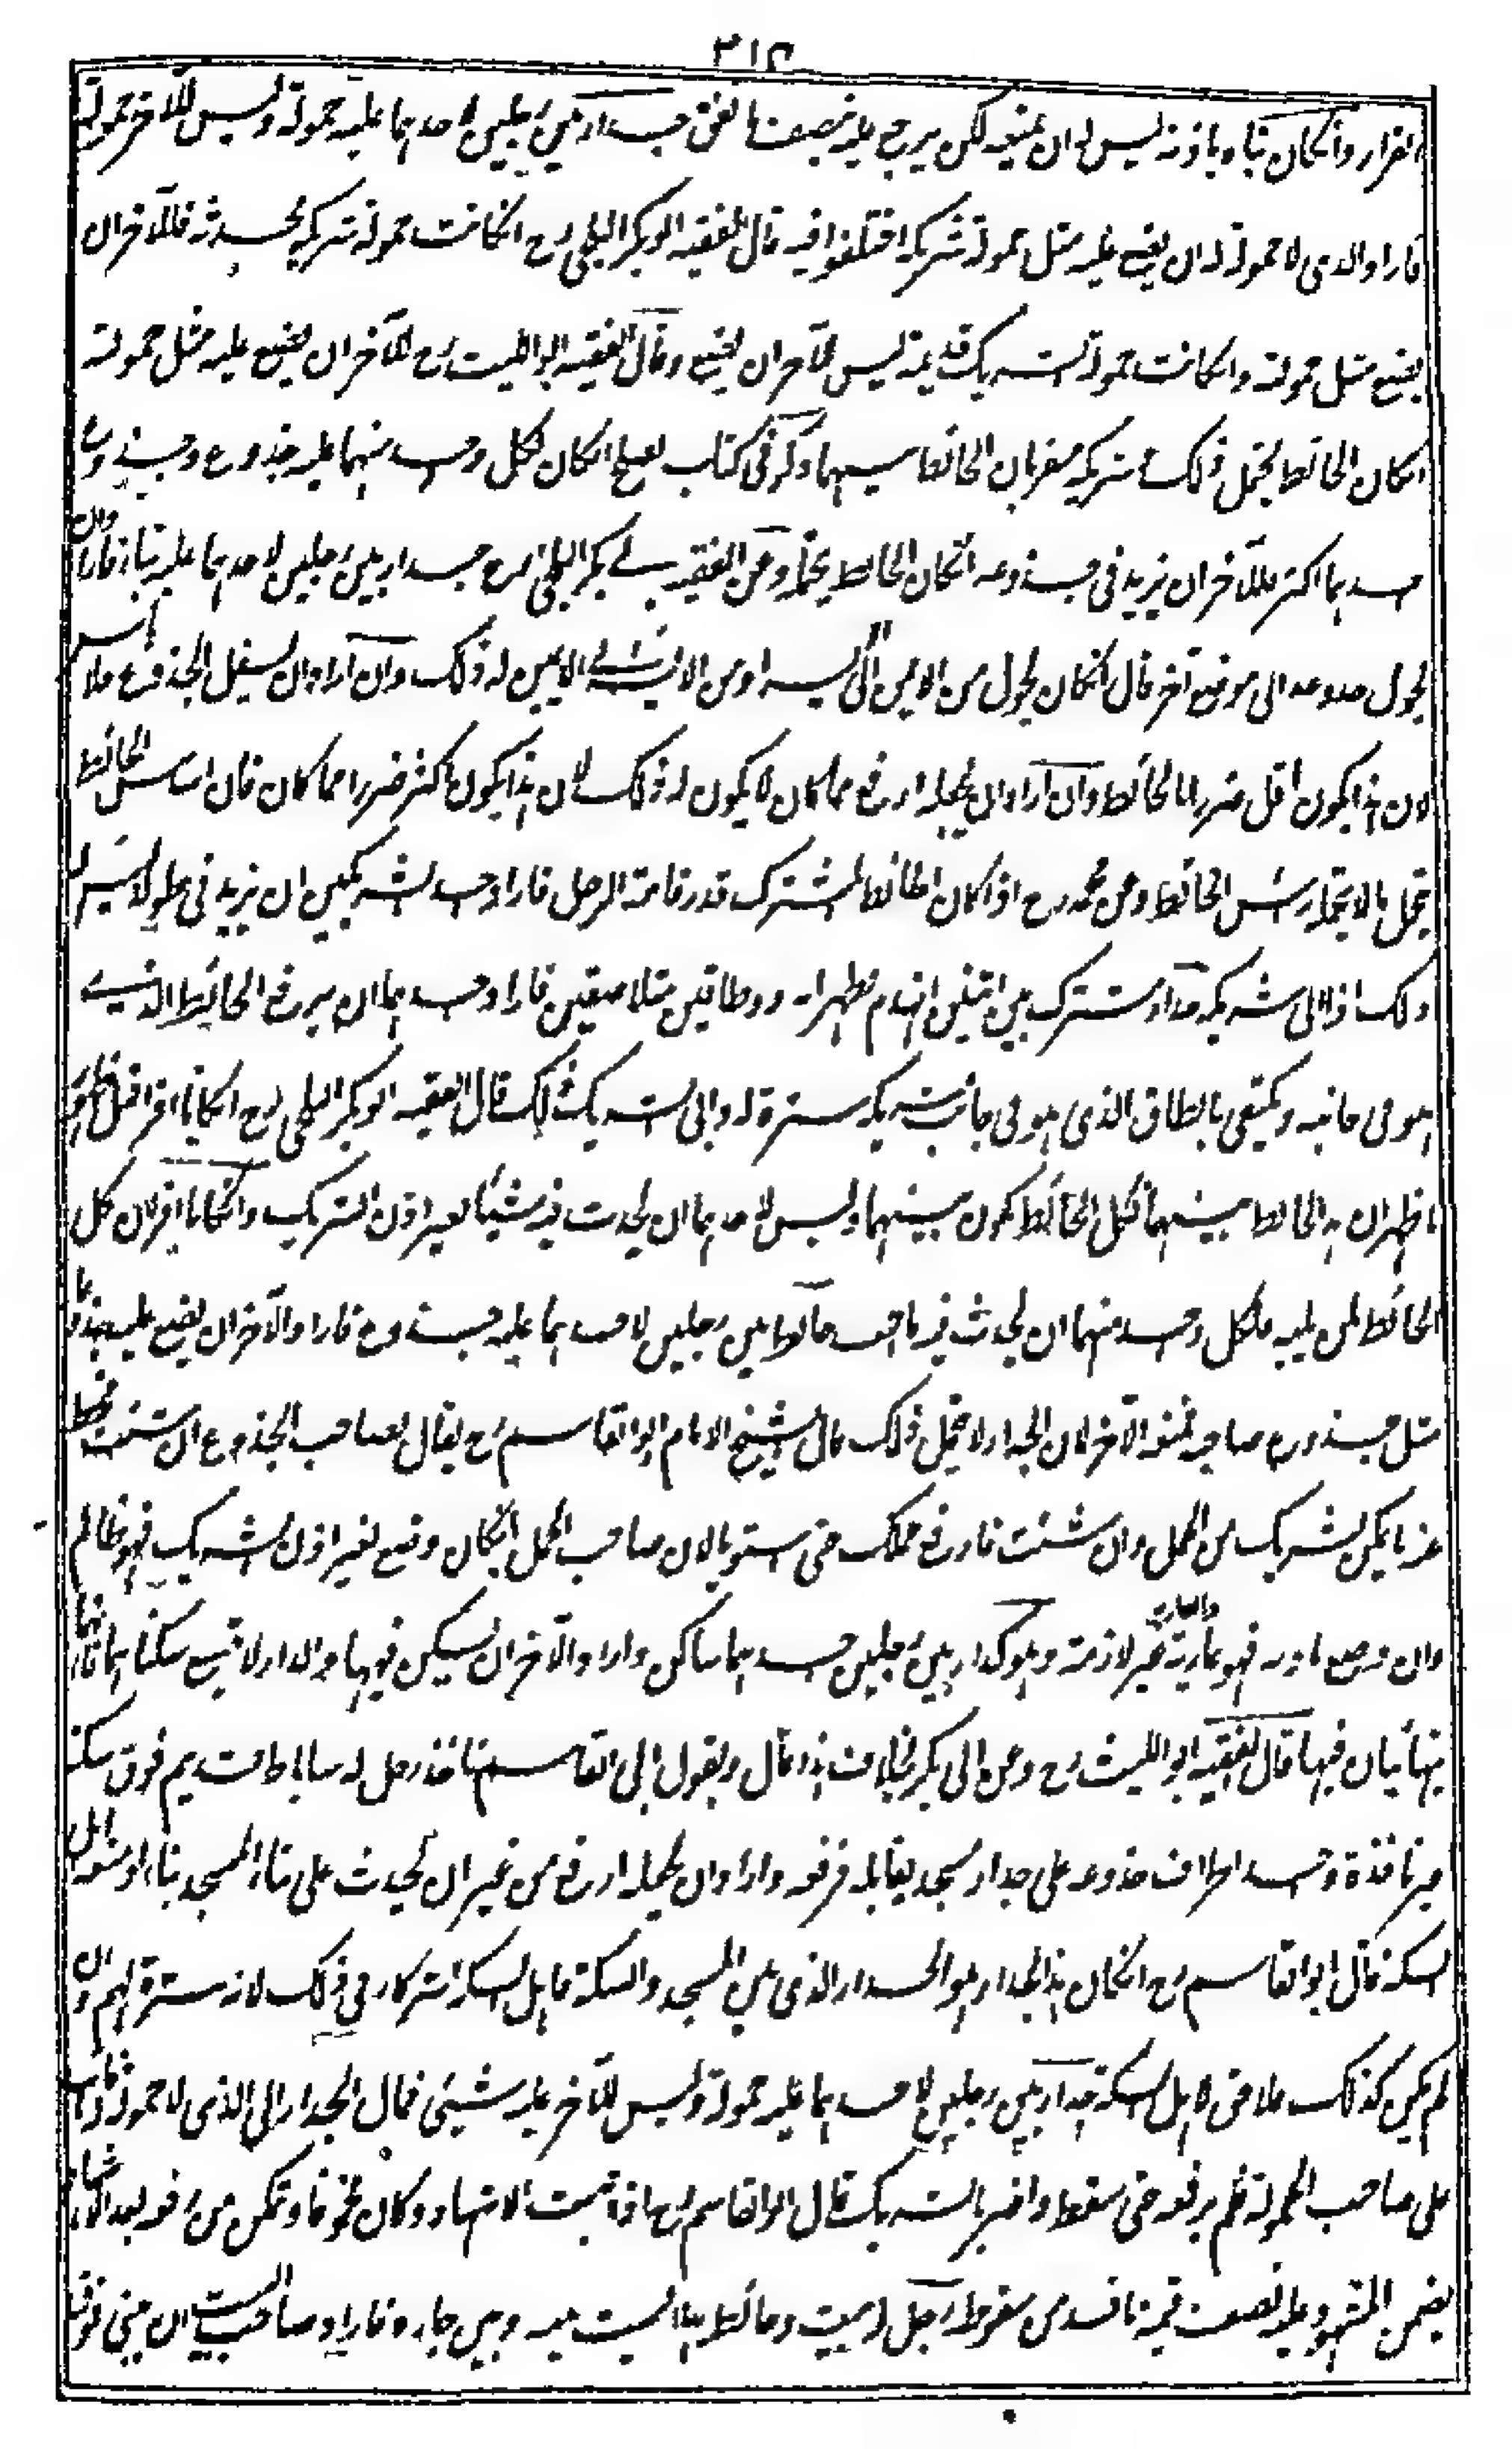 ٣١٢
القرار وانكان بناه باذنه ليس له ان يمنعه لكن يرجع عليه بنصف ما انفق جدار بين رجلين لاحدهما عليه حمولة وليس للآخر حمولة
فاراد الذي لا حمولة له ان يضع عليه مثل حمولة شريكه اختلفوا فيه قال الفقيه ابو بكر البلخي رح انكانت حمولة شريكه محدثة فللآخر ان
يضع مثل حمولته وانكانت حمولة الشريك قديمة ليس للآخر ان يضع وقال الفقيه ابو الليث رح للآخر ان يضع عليه مثل حمولته
انكان الحائط يحتمل ذلك شريكه مقر بان الحائط بينهما وذكر في كتاب الصلح انكان لكل واحد منهما عليه جذوع وجذوع
احدهما اكثر فللآخر ان يزيد في جذوعه انكان الحائط يحتمل وعن الفقيه ابي بكر البلخي رح جدار بين رجلين لاحدهما عليه بناء فاراد ان
يحول جذوعه الى موضع آخر قال انكان يحول من الايمن الى الايسر او من الايسر الى الايمن ليس له ذلك وان اراد ان يسفل الجذوع فلا باس
لان هذا يكون اقل ضررا بالحائط وان اراد ان يجعله ارفع مما كان لا يكون له ذلك لان هذا يكون اكثر ضررا مما كان فان اساس الحائط
يتحمل ما لا يتحمله راس الحائط وعن محمد رح اذا كان الحائط المشترك قدر قامة الرجل فاراد احد الشريكين ان يزيد في طوله ليس له
ذلك اذا ابى شريكه جدار مشترك بين اثنين انهدم فظهر انه ذو طاقين متلاصقين فاراد احدهما ان يرفع الحائط الذي
هو في جانبه ويكتفي بالطاق الذي هو في جانب شريكه سترة له وابى الشريك ذلك قال الفقيه ابو بكر البلخي رح انكانا اقرا قبل ظهور
ما ظهر ان هذا الحائط بينهما فكل الحائط يكون بينهما وليس لاحدهما ان يحدث فيه شيئا بغير اذن الشريك وانكانا اقرا ان كل
الحائط لمن يليه فلكل واحد منهما ان يحدث فيه ما احب حائط بين رجلين لاحدهما عليه جذوع فاراد الآخر ان يضع عليه جذوعا
مثل جذوع صاحبه فمنعه الآخر لان الجدار لا يحتمل ذلك قال الشيخ الامام ابو القاسم رح يقال لصاحب الجذوع ان شئت فحط
عنه ما يمكن لشريكك من الحمل وان شئت فارفع حملك حتى تستويا لان صاحب الحمل انكان وضع بغير اذن الشريك فهو ظالم
وان وضع باذنه فهو عارية والعارية غير لازمة وهو كدار بين رجلين احدهما ساكن واراد الآخر ان يسكن فيها والدار لا تسع سكناهما فانهما
يتهايئان فيها قال الفقيه ابو الليث رح وعن ابي بكر بخلاف هذا قال وبقول ابي القاسم ناخذ رجل له ساباط قديم فوق سكة
غير نافذة واحد اطراف جذوعه على جدار مسجد يقابله فرفعه واراد ان يجعله ارفع من غير ان يحدث على بناء المسجد بناء او منعه اهل
السكة قال ابو القاسم رح انكان هذا الجدار هو الجدار الذي بين المسجد والسكة فاهل السكة شركاؤه في ذلك لانه سترة لهم وان
لم يكن كذلك فلا حق لاهل السكة جدار بين رجلين لاحدهما عليه حمولة وليس للآخر عليه شيئ فمال الجدار الى الذي لا حمولة له فاشهد
على صاحب الحمولة فلم يرفعه حتى سقط واضر بالشريك قال ابو القاسم رح اذا ثبت الاشهاد وكان مخوفا وتمكن من رفعه بعد الاشهاد
يضمن المشهود عليه نصف قيمة ما فسد من سقوطه رجل له بيت وحائط هذا البيت بينه وبين جاره فاراد صاحب البيت ان يبني فوق